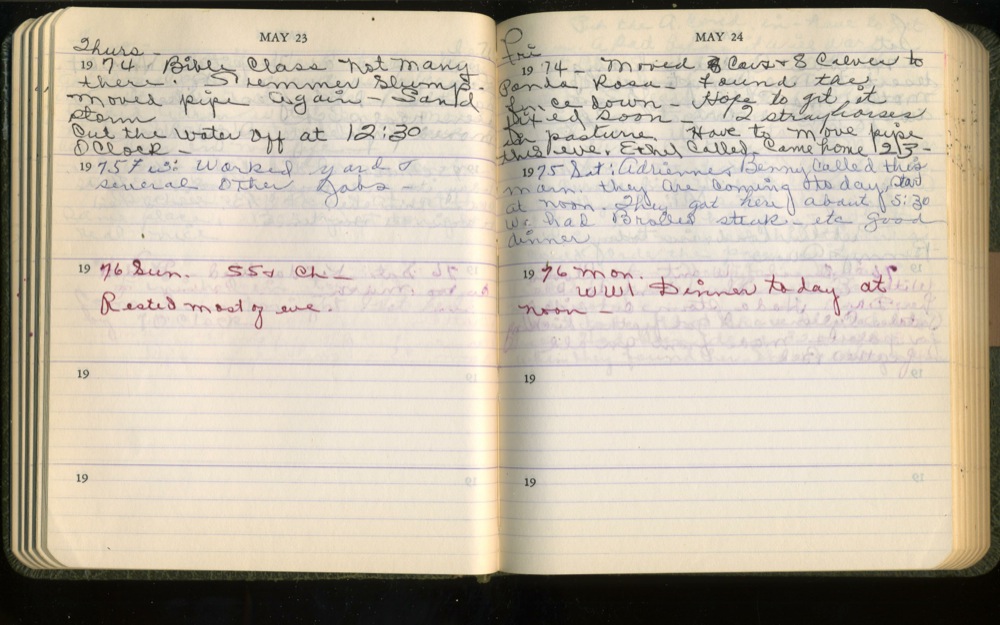 MAY 23
Thurs -
1974 Bible Class not Many
there. Summer Slump.
Moved pipe again - Sand
storm
Cut the water off at 12:30
O'Clock -
1975 Fri: Worked yard &
several Other Jobs -
1976 Sun. SS & Ch -
Rested most of eve.
19
19
MAY 24
Fri
1974 - Moved 8 Cows & 8 Calves to
Ponda Rosa - Found the
fence down - Hope to git it
fixed soon - 2 stray horses
in pasture. Have to move pipe
this eve. Ethel Called, Came home 12/3 -
1975 Sat: Adrienne & Benny Called this
morn. they are coming to day, Start
at noon. They got here about 5:30
We had Broiled steak - etc good
dinner
1976 Mon.
WWI Dinner today at
noon -
19
19